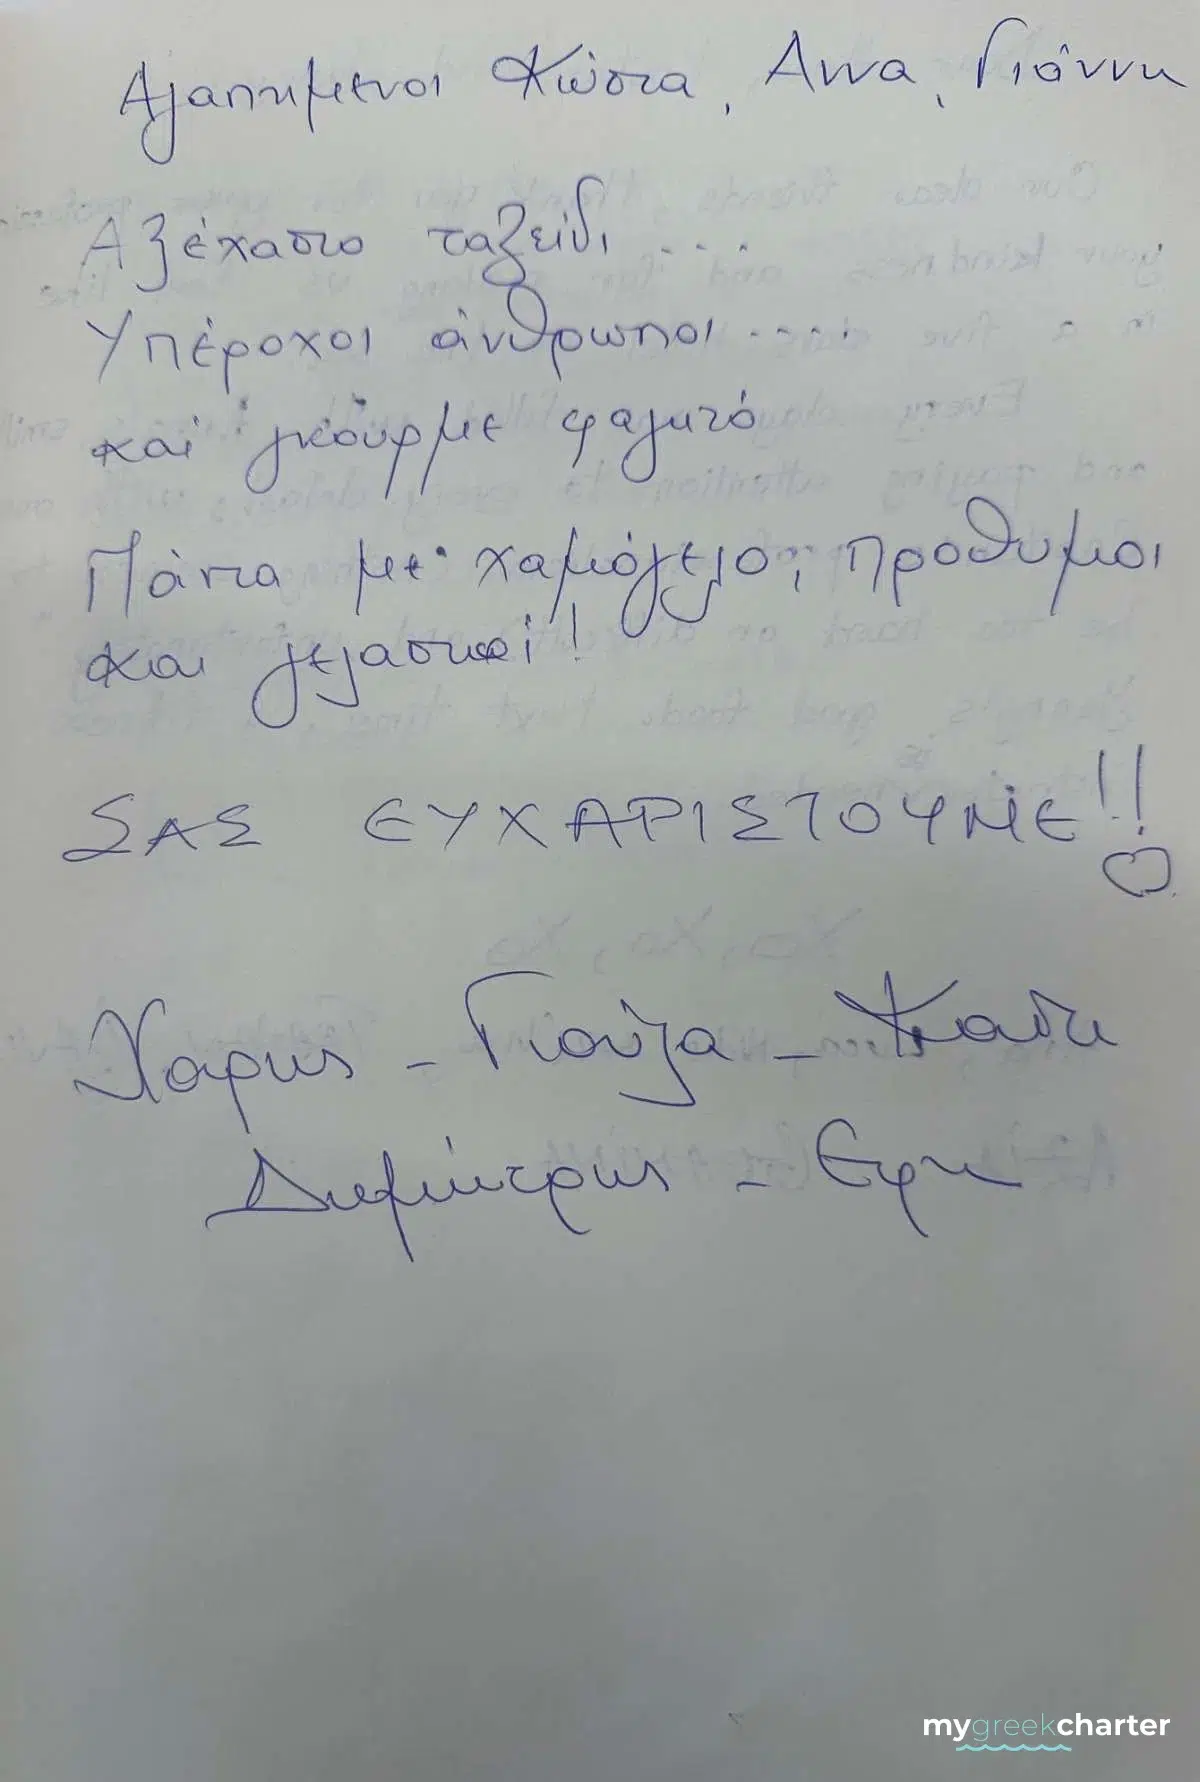 Αγαπημενοι Κώστα, Αννα, Γιάννη
Αξέχαστο ταξείδι ....
Υπέροχοι άνθρωποι ....
και γκουρμε φαγητό
Πάντα με χαμόγελο, προθυμοι
και γελαστοί!
ΣΑΣ ΕΥΧΑΡΙΣΤΟΥΜΕ!!
Χαρης - Γιούλα -
Δημήτρης - Εφη
mygreekcharter